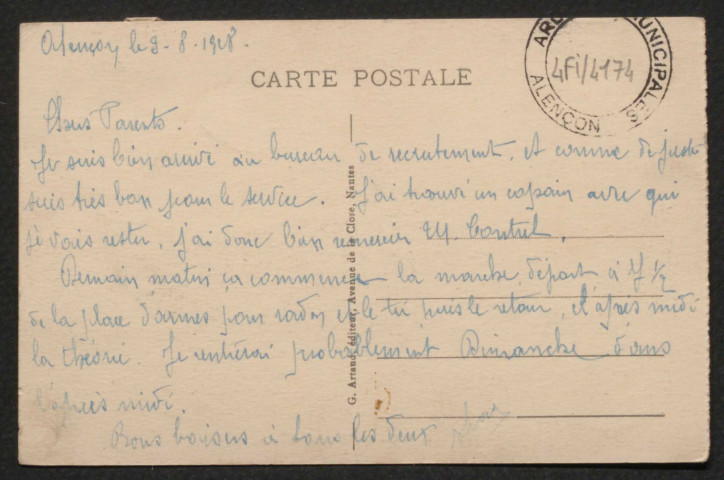 Alençon le 9-8-1928.
CARTE POSTALE
ARCHIVES MUNICIPALES
4FI/4174
ALENÇON
Chers Parents.
Je suis bien arrivé au bureau de recrutement, et comme de juste
suis très bon pour le service. J'ai trouvé un copain avec qui
je vais rester, j'ai donc bien remercier M.
Demain matin ça commence la marche, départ à 7 ½
de la place d'armes pour et le tir puis le retour, et après midi
la théorie. Je rentrerai probablement Dimanche dans
l'après midi.
Bons baisers à tous les deux
G. Artaud, éditeur, Avenue de la Close, Nantes